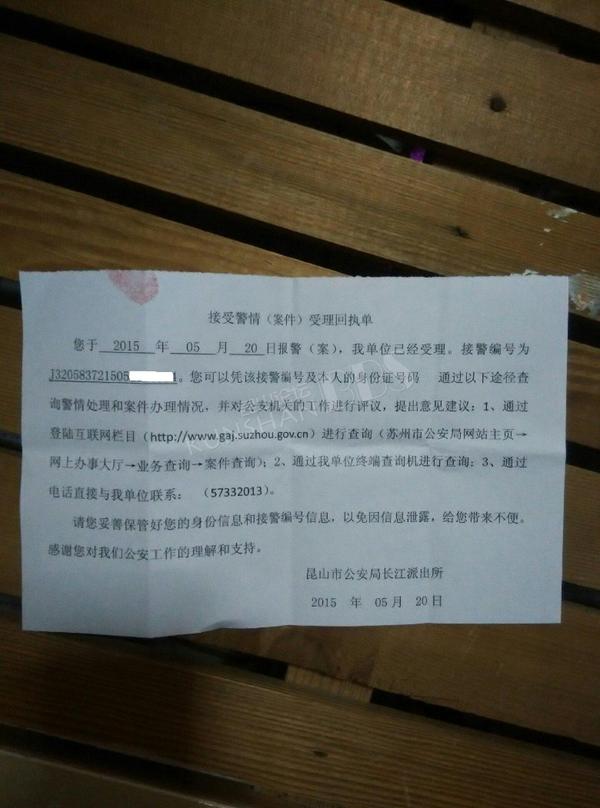 接受警情（案件）受理回执单
您于 2015 年 05 月 20 日报警（案），我单位已经受理。接警编号为
J320583721505 1。您可以凭该接警编号及本人的身份证号码 通过以下途径查
询警情处理和案件办理情况，并对公安机关的工作进行评议，提出意见建议：1、通过
登陆互联网栏目（http://www.gaj.suzhou.gov.cn）进行查询（苏州市公安局网站主页→
网上办事大厅→业务查询→案件查询）；2、通过我单位终端查询机进行查询；3、通过
电话直接与我单位联系：（57332013）。
请您妥善保管好您的身份信息和接警编号信息，以免因信息泄露，给您带来不便。
感谢您对我们公安工作的理解和支持。
昆山市公安局长江派出所
2015 年 05 月 20 日